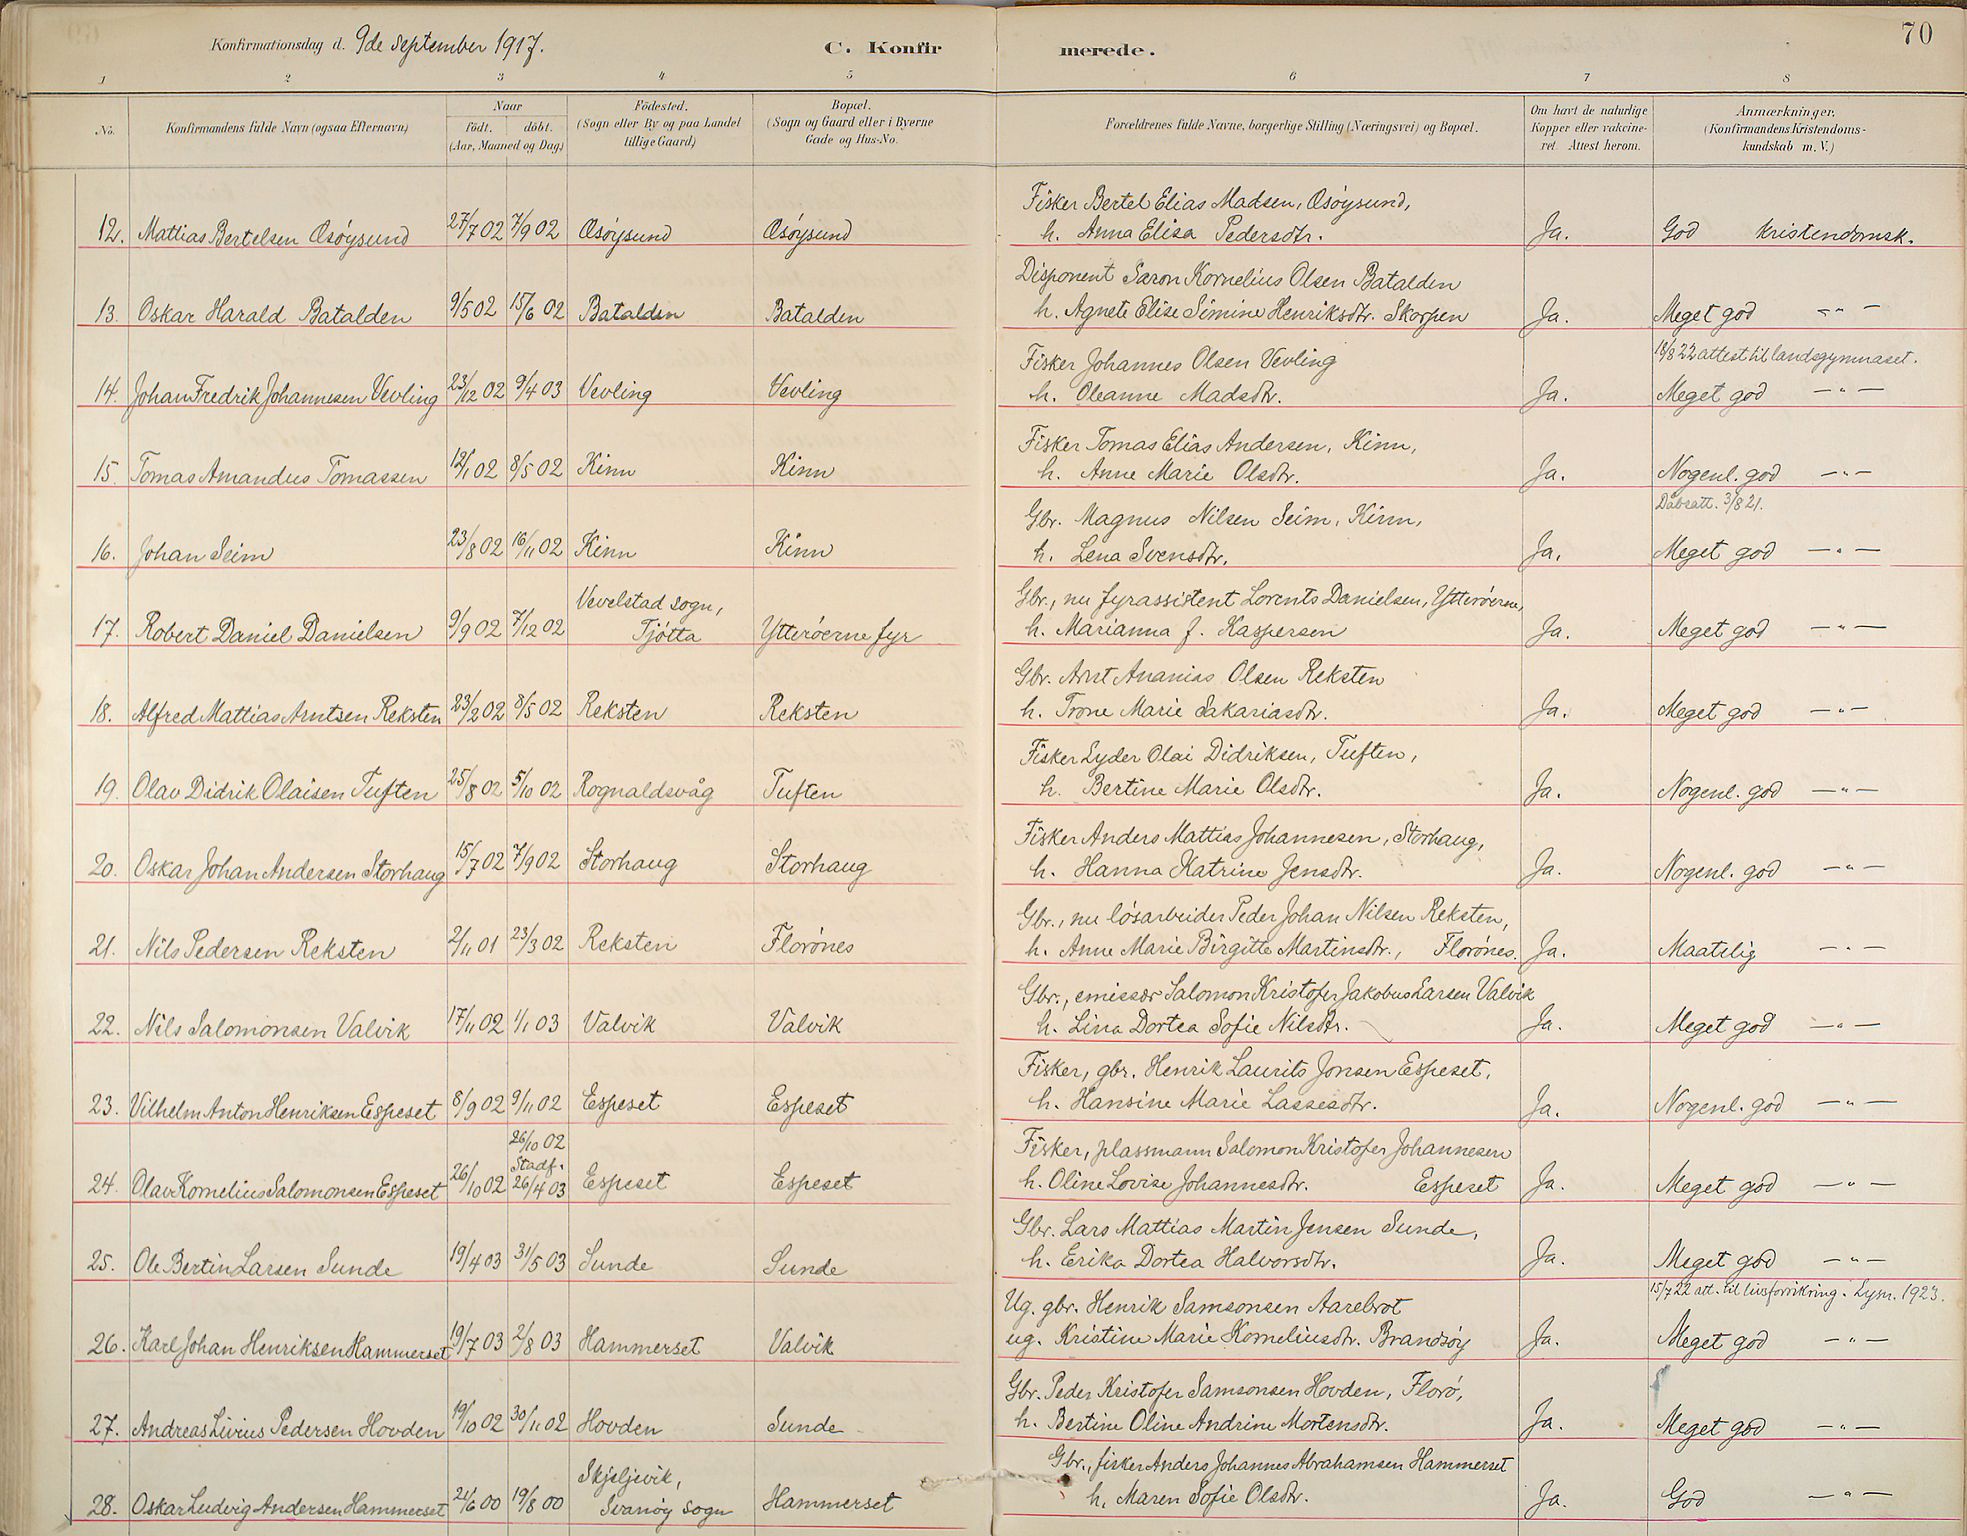 Konfirmationsdag d. 9de September 1917. C. Konfirmerede. 70
1 2 3 4 5 6 7 8
No. Konfirmandens fulde Navn (ogsaa Efternavn) Naar födt. döbt. (Aar, Maaned og Dag) Födested. (Sogn eller By og paa Landet tillige Gaard) Bopæl. (Sogn og Gaard eller i Byerne Gade og Hus-No. Forældrenes fulde Navne, borgerlige Stilling (Næringsvei) og Bopæl. Om havt de naturlige Kopper eller vakcineret. Attest herom. Anmærkninger, (Konfirmandens Kristendomskundskab m. V.)
Fisker Bertel Elias Madsen, Osöysund,
12. Mattias Bertelsen Osöysund 27/7 02 7/9 02 Osöysund Osöysund h. Anna Elisa Pedersdtr. Ja. God kristendomsk.
Disponent Saron Kornelius Olsen Batalden
13. Oskar Harald Batalden 9/5 02 15/6 02 Batalden Batalden h. Agnete Elise Simine Henriksdtr. Skorpen Ja. Meget god — " —
Fisker Johannes Olsen Vevling 18/8 22 attest til landsgymnaset.
14. Johan Fredrik Johannesen Vevling 23/12 02 9/4 03 Vevling Vevling h. Oleanne Madsdtr. Ja. Meget god — " —
Fisker Tomas Elias Andersen, Kinn,
15. Tomas Amandus Tomassen 12/1 02 8/5 02 Kinn Kinn h. Anne Marie Olsdtr. Ja. Nogenl. god — " —
Gbr. Magnus Nilsen Seim, Kinn, Dåbsatt. 3/8 21.
16. Johan Seim 23/8 02 16/11 02 Kinn Kinn h. Lena Svensdtr. Ja. Meget god — " —
Vevelstad sogn, Gbr., nu fyrassistent Lorents Danielsen, Ytteröerne,
17. Robert Daniel Danielsen 9/9 02 7/12 02 Tjötta Ytteröerne fyr h. Marianna f. Kaspersen Ja. Meget god — " —
Gbr. Arnt Ananias Olsen Reksten
18. Alfred Mattias Arntsen Reksten 23/2 02 8/5 02 Reksten Reksten h. Trone Marie Sakariasdtr. Ja. Meget god — " —
Fisker Lyder Olai Didriksen, Tuften,
19. Olav Didrik Olaisen Tuften 25/8 02 5/10 02 Rognaldsvåg Tuften h. Bertine Marie Olsdtr. Ja. Nogenl. god — " —
Fisker Anders Mattias Johannesen, Storhaug,
20. Oskar Johan Andersen Storhaug 15/7 02 7/9 02 Storhaug Storhaug h. Hanna Katrine Jensdtr. Ja. Nogenl. god — " —
Gbr., nu lösarbeider Peder Johan Nilsen Reksten,
21. Nils Pedersen Reksten 2/11 01 23/3 02 Reksten Florönes h. Anne Marie Birgitte Martinsdtr., Florönes. Ja. Maatelig — " —
Gbr., emissær Salomon Kristofer Jakobus Larsen Valvik
22. Nils Salomonsen Valvik 17/11 02 1/1 03 Valvik Valvik h. Lina Dortea Sofie Nilsdtr. Ja. Meget god — " —
Fisker, gbr. Henrik Laurits Jonsen Espeset,
23. Vilhelm Anton Henriksen Espeset 8/9 02 9/11 02 Espeset Espeset h. Hansine Marie Lassesdtr. Ja. Nogenl. god — " —
26/10 02 Stadf. Fisker, plassmann Salomon Kristofer Johannesen
24. Olav Kornelius Salomonsen Espeset 26/10 02 26/4 03 Espeset Espeset h. Oline Lovise Johannesdtr. Espeset Ja. Meget god — " —
Gbr. Lars Mattias Martin Jensen Sunde,
25. Ole Bertin Larsen Sunde 19/4 03 31/5 03 Sunde Sunde h. Erika Dortea Halvorsdtr. Ja. Meget god — " —
Ug. gbr. Henrik Samsonsen Aarebrot 15/7 22 att. til livsforsikring. Lysn. 1923.
26. Karl Johan Henriksen Hammerset 19/7 03 2/8 03 Hammerset Valvik ug. Kristine Marie Korneliusdtr. Brandsöy Ja. Meget god — " —
Gbr. Peder Kristofer Samsonsen Hovden, Florö,
27. Andreas Livius Pedersen Hovden 19/10 02 30/11 02 Hovden Sunde h. Bertine Oline Andrine Mortensdtr. Ja. Meget god — " —
Skjeljevik, Gbr., fisker Anders Johannes Abrahamsen Hammerset
28. Oskar Ludvig Andersen Hammerset 21/6 00 19/8 00 Svanöy sogn Hammerset h. Maren Sofie Olsdtr. Ja. God — " —